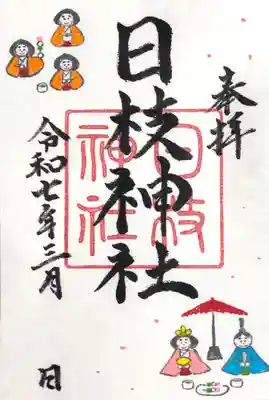 奉拝
日枝神社
日枝神社
令和七年三月 日